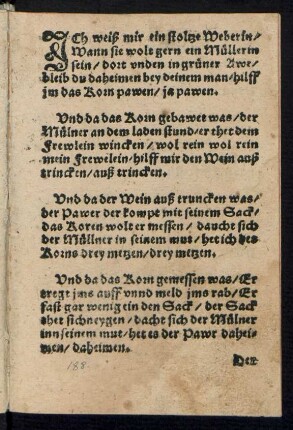 ICh weiß mir ein stoltze Weberin/
Wann sie wolt gern ein Müllerin
sein/ dort vnden in grüner Awe/
bleib du daheimen bey deinem man/hilff
jm das Korn pawen/ ja pawen.
Vnd da das Korn gebawet was/ der
Mülner an dem laden stund/er thet dem
Frewlein wincken/ wol rein wol rein
mein Frewelein/hilff mir den Wein auß
trincken/auß trincken.
Vnd da der Wein auß truncken was/
der Pawer der kompt mit seinem Sack/
das Koren wolt er messen/ daucht sich
der Müllner in seinem mut/het ich des
Korns drey metzen/drey metzen.
Vnd da das Korn gemessen was/Er
tregt jms auff vnnd meld jms rab/Er
fast gar wenig ein den Sack/ der Sack
thet sichneygen/ dacht sich der Mülner
inn seinem mut/het es der Pawr dahei-
men/daheimen.
Der
188